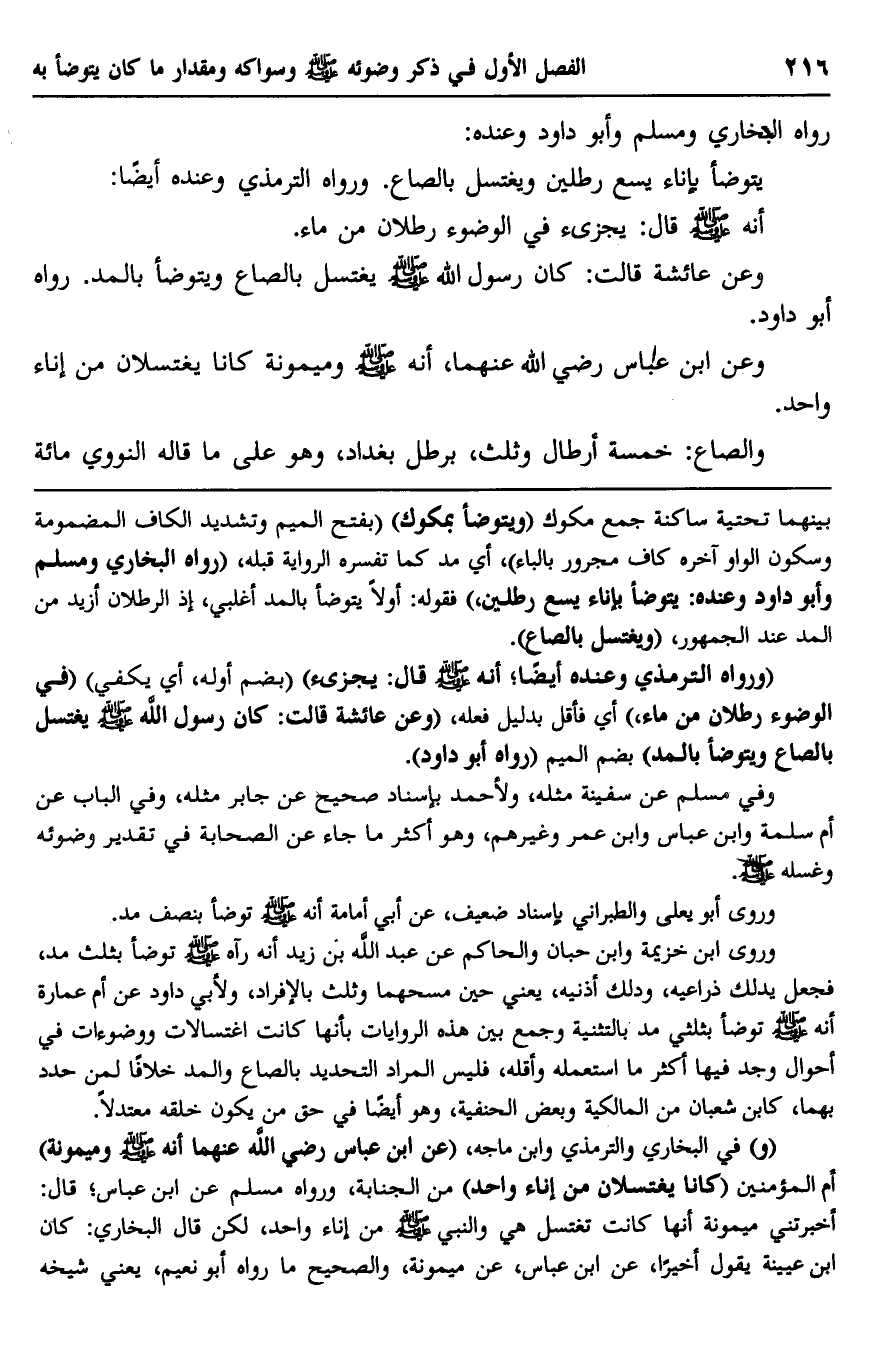 ٢١٦ الفصل الأول في ذكر وضوئه ﷺ وسواكه ومقدار ما كان يتوضأ به
رواه البخاري ومسلم وأبو داود وعنده:
يتوضأ بإناء يسع رطلين ويغتسل بالصاع. ورواه الترمذي وعنده أيضًا:
أنه ﷺ قال: يجزىء في الوضوء رطلان من ماء.
وعن عائشة قالت: كان رسول الله ﷺ يغتسل بالصاع ويتوضأ بالمد. رواه
أبو داود.
وعن ابن عباس رضي الله عنهما، أنه ﷺ وميمونة كانا يغتسلان من إناء
واحد.
والصاع: خمسة أرطال وثلث، برطل بغداد، وهو على ما قاله النووي مائة
بينهما تحتية ساكنة جمع مكوك (ويتوضأ بمكوك) (بفتح الميم وتشديد الكاف المضمومة
وسكون الواو آخره كاف مجرور بالباء)، أي مد كما تفسره الرواية قبله، (رواه البخاري ومسلم
وأبو داود وعنده: يتوضأ بإناء يسع رطلين،) فقوله: أولاً يتوضأ بالمد أغلبي، إذ الرطلان أزيد من
المد عند الجمهور، (ويغتسل بالصاع).
(ورواه الترمذي وعنده أيضًا؛ أنه ﷺ قال: يجزىء) (بضم أوله، أي يكفي) (في
الوضوء رطلان من ماء،) أي فأقل بدليل فعله، (وعن عائشة قالت: كان رسول اللَّه ﷺ يغتسل
بالصاع ويتوضأ بالمد) بضم الميم (رواه أبو داود).
وفي مسلم عن سفينة مثله، ولأحمد بإسناد صحيح عن جابر مثله، وفي الباب عن
أم سلمة وابن عباس وابن عمر وغيرهم، وهو أكثر ما جاء عن الصحابة في تقدير وضوئه
وغسله ﷺ.
وروى أبو يعلى والطبراني بإسناد ضعيف، عن أبي أمامة أنه ﷺ توضأ بنصف مد.
وروى ابن خزيمة وابن حبان والحاكم عن عبد اللَّه بن زيد أنه رآه ﷺ توضأ بثلث مد،
فجعل يدلك ذراعيه، ودلك أذنيه، يعني حين مسحهما وثلث بالإفراد، ولأبي داود عن أم عمارة
أنه ﷺ توضأ بثلثي مد بالتثنية وجمع بين هذه الروايات بأنها كانت اغتسالات ووضوءات في
أحوال وجد فيها أكثر ما استعمله وأقله، فليس المراد التحديد بالصاع والمد خلافًا لمن حدد
بهما، كابن شعبان من المالكية وبعض الحنفية، وهو أيضًا في حق من يكون خلقه معتدلاً.
(و) في البخاري والترمذي وابن ماجه، (عن ابن عباس رضي اللَّه عنهما أنه ﷺ وميمونة)
أم المؤمنين (كانا يغتسلان من إناء واحد) من الجنابة، ورواه مسلم عن ابن عباس؛ قال:
أخبرتني ميمونة أنها كانت تغتسل هي والنبي ﷺ من إناء واحد، لكن قال البخاري: كان
ابن عيينة يقول أخيرًا، عن ابن عباس، عن ميمونة، والصحيح ما رواه أبو نعيم، يعني شيخه